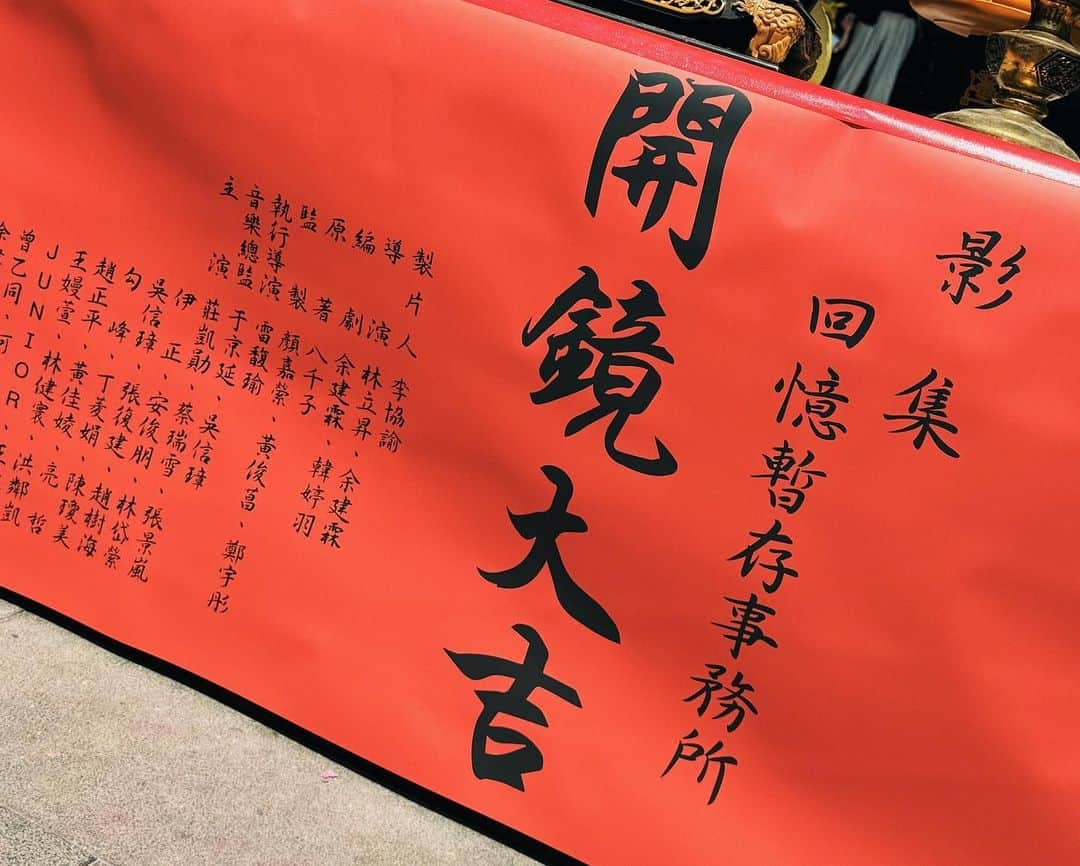 影集
回憶暫存事務所
開鏡大吉
製片人 李協諭
導演 林立昇、余建霖
編劇 余建霖、韓婷羽
原著 八千子
監製 顏嘉縈、黃俊菖、鄭宇彤
執行導演 雷馥瑜
音樂總監 于京延、吳信璋
主演 莊凱勛、蔡瑞雪、張景嵐
伊正、安俊朋、林岱縈
吳信璋、張俊建、趙樹海
勾峰、丁菱娟、陳瓊美
趙正平、黃佳婈、亮哲
王嫚萱、林健寰、洪鄰凱
JUNIOR、王
曾乙同、何
徐